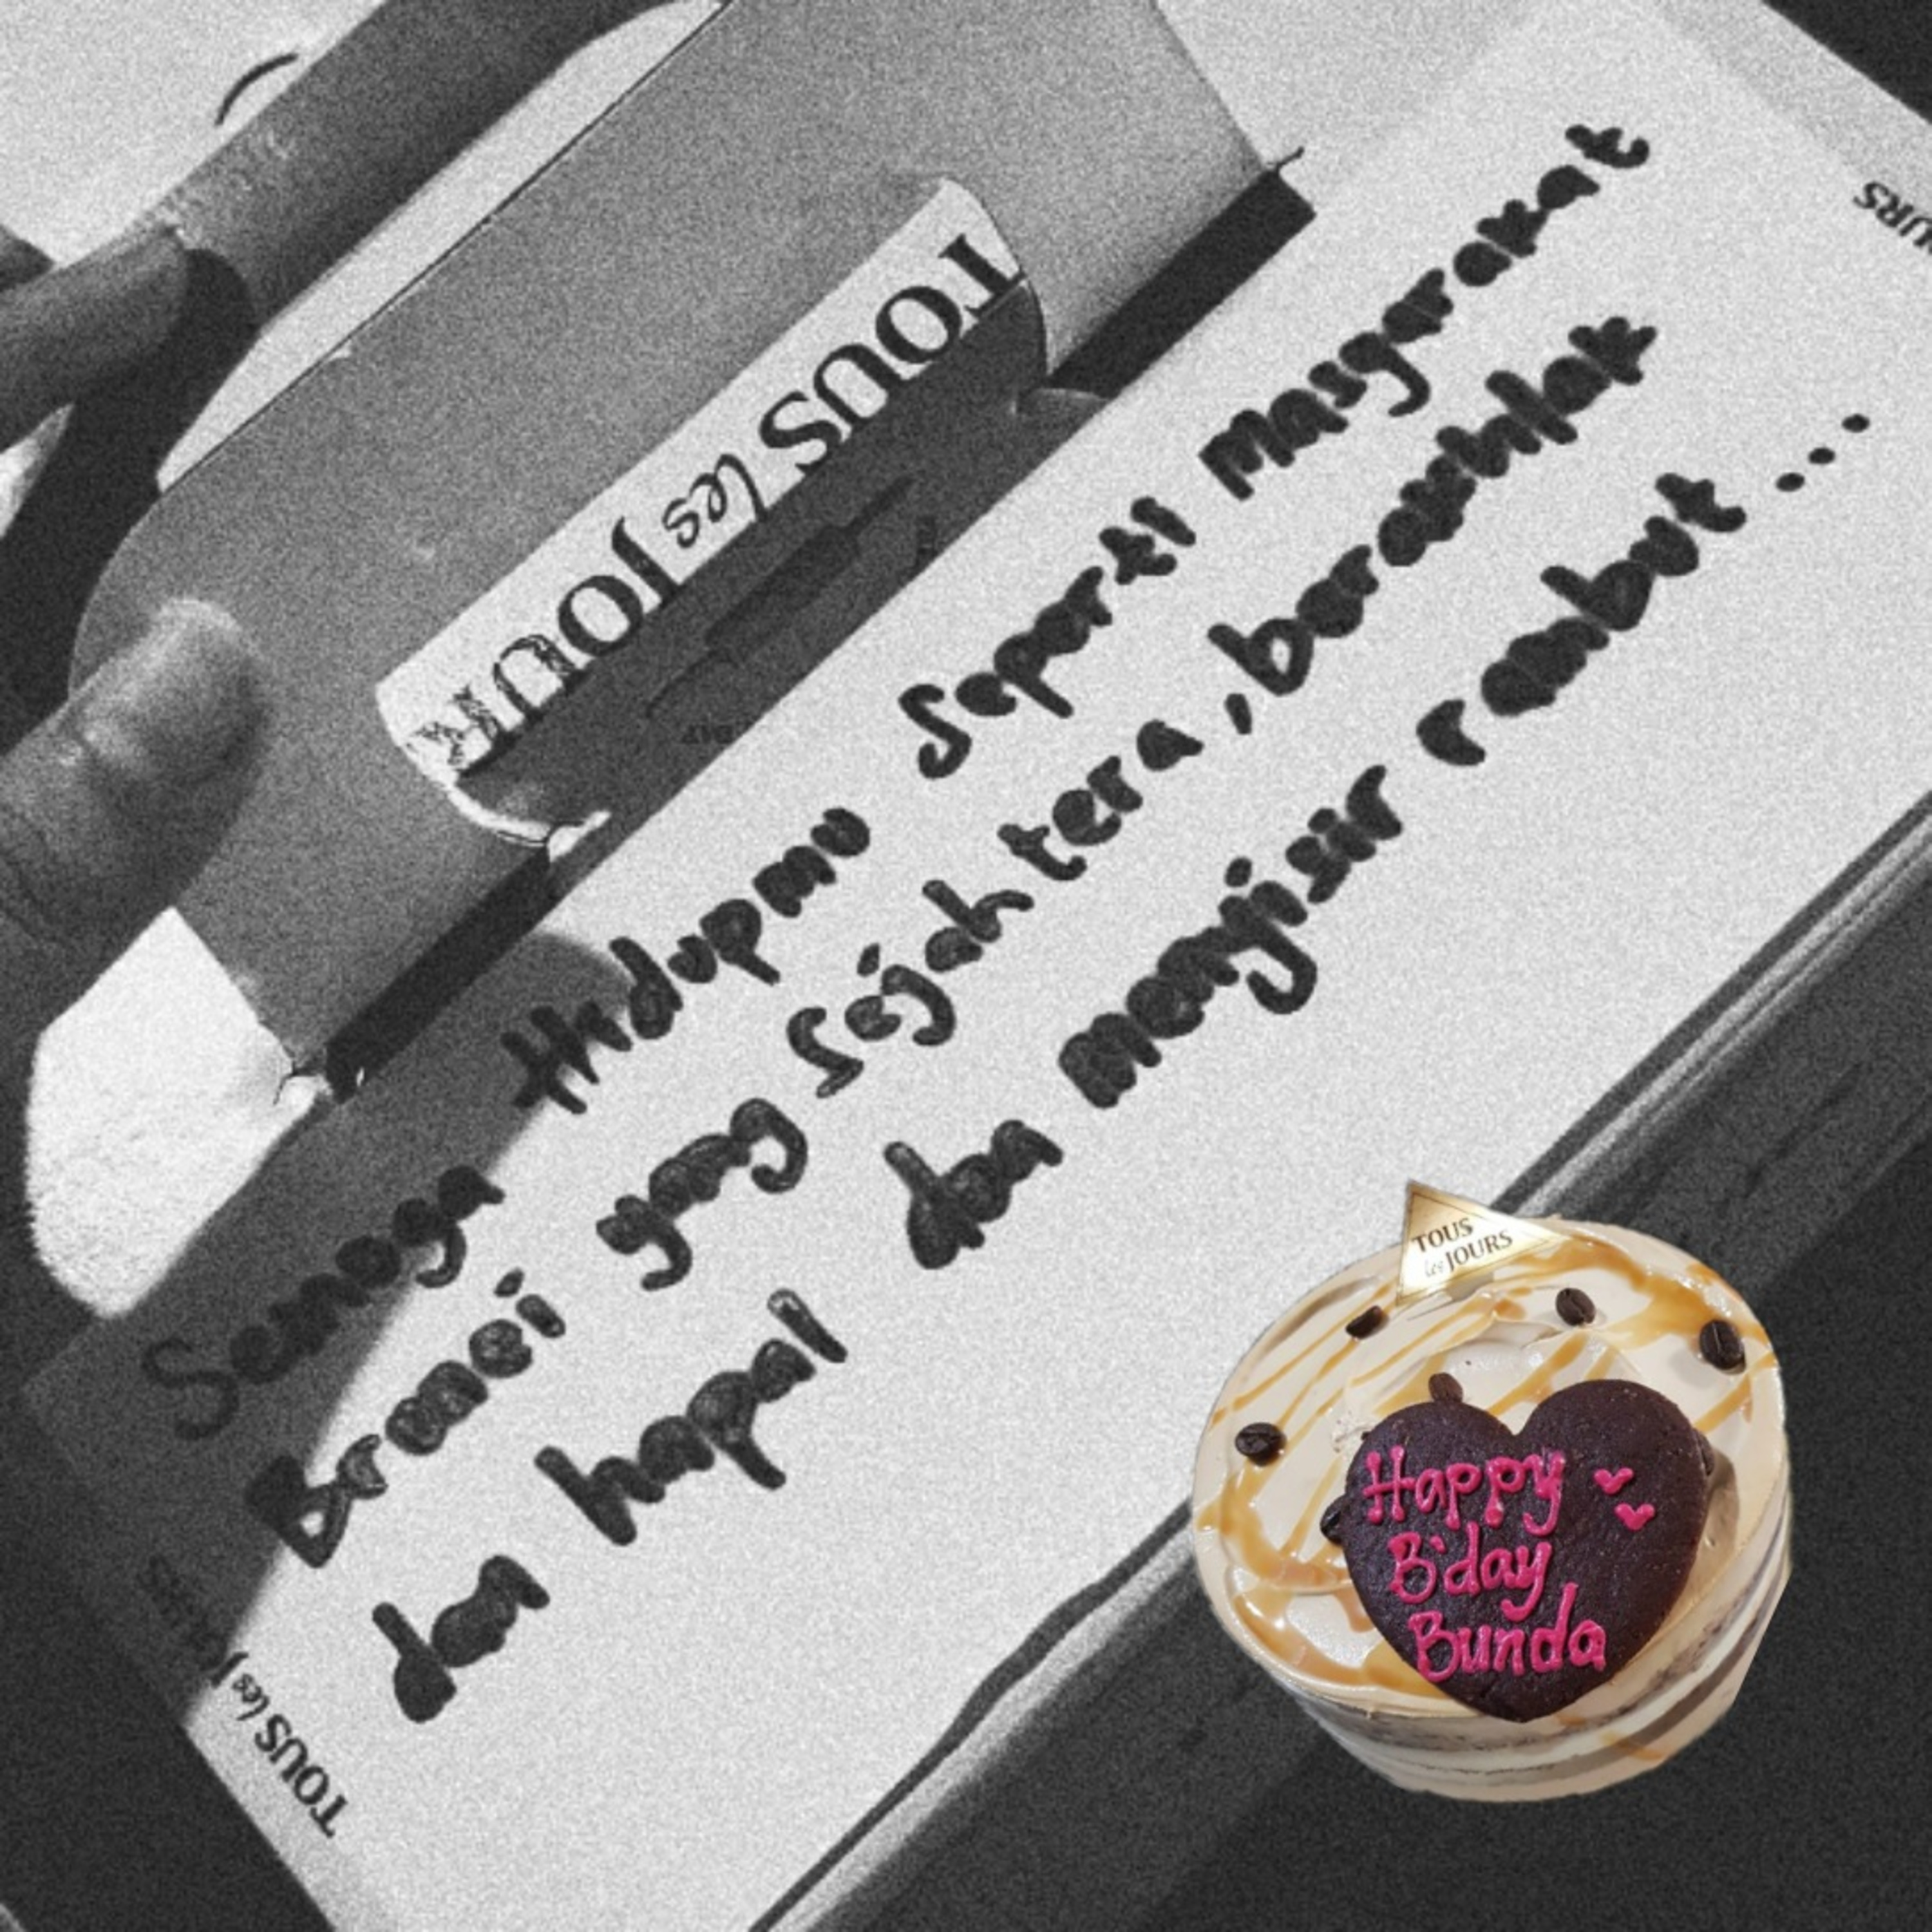 TOUS les JOUR
URS
Semoga Hidupmu seperti masyarakat
Brunei yang sejahtera, berakhlak
dan hapal dan mengisir rambut ...
TOUS les J
TOUS
les JOURS
Happy
B'day
Bunda